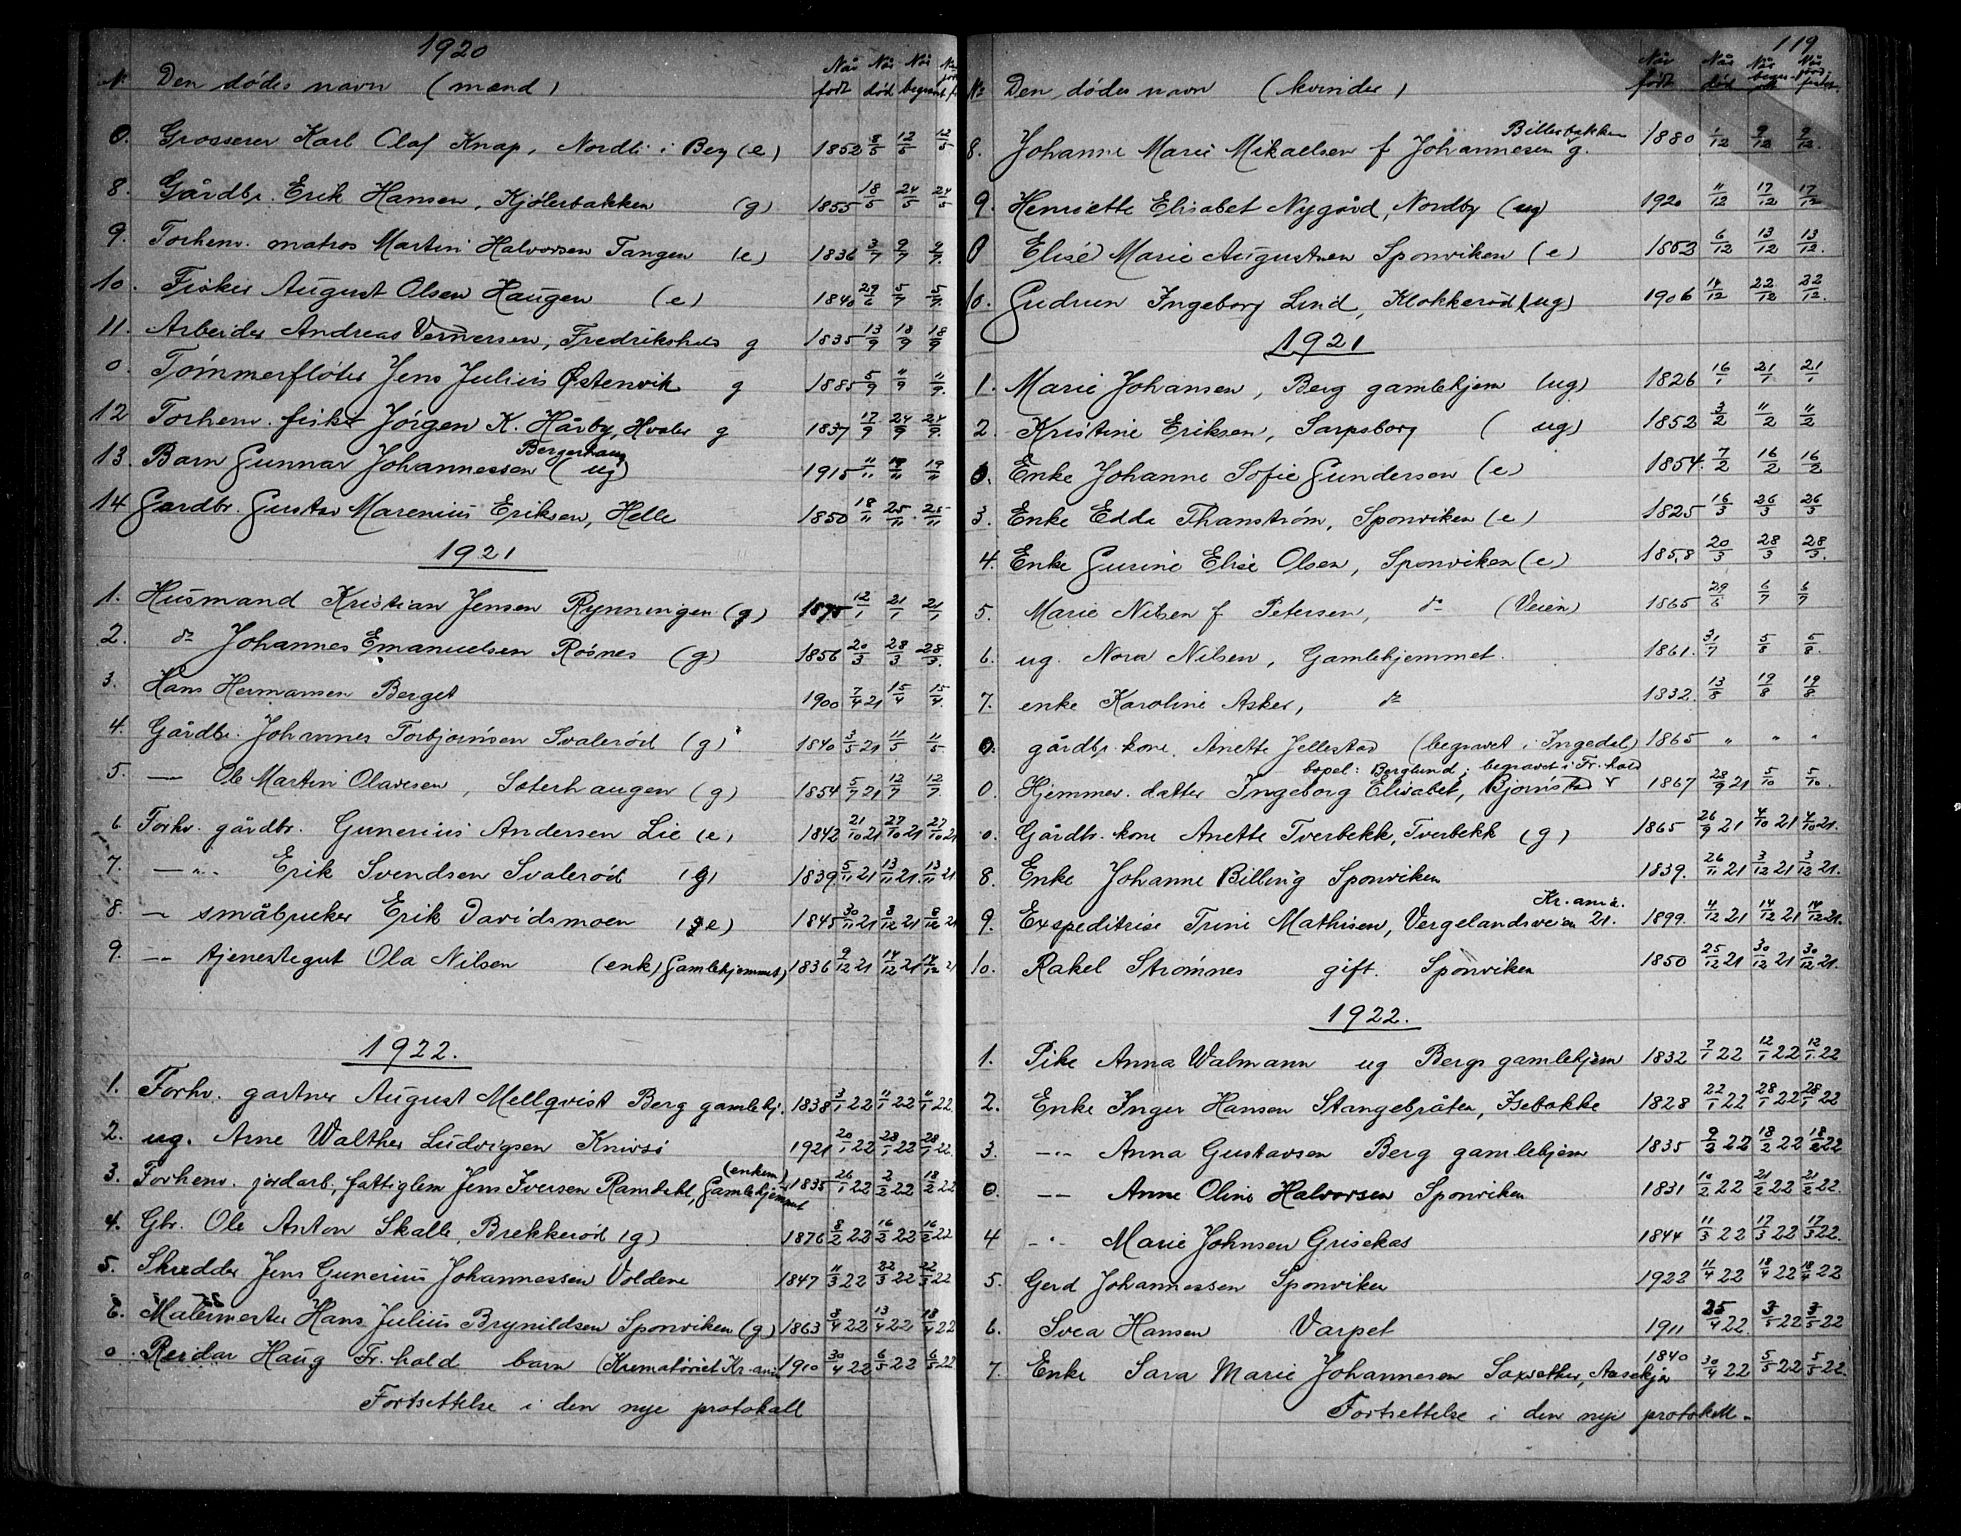 1920
No Den dødes navn (mænd) Når født Når død Når begravet
0. Grosserer Karl Olaf Knap, Nordli i Berg (e) 1852 8/5 12/5 12/5
8. Gårdbr. Erik Hansen, Kjølerbakken (g) 1855 18/5 24/5 24/5
9. Forhenv. matros Martin Halvorsen Tangen (e) 1836 3/7 9/7 9/7.
10. Fisker August Olsen Haugen (e) 1840 29/6 5/7 5/7.
11. Arbeider Andreas Vernersen, Fredrikshald g 1835 13/9 18/9 18/9
0. Tømmerfløter Jens Julius Østenvik g 1885 5/9 11/9 11/9.
12 Forhenv. fisker Jørgen K. Hårby, Hvaler g 1837 17/9 24/9 24/9.
Bergerhaug
13. Barn Gunnar Johannessen (ug) 1915 11/11 19/11 19/11
14 Gardbr. Gustav Marenius Eriksen, Helle 1850 18/11 25/11. 25/11
1921
1. Husmand Kristian Jensen Rynningen (g) 1875 12/1 21/1 21/1
2. do Johannes Emanuelsen Rosnes (g) 1856 20/3 28/3 28/3.
3. Hans Hermansen Berget 1900 7/4 21 15/4 15/4.
4. Gårdbr. Johannes Torbjørnsen Svalerød (g) 1840 3/5 21 11/5 11/5
5. — Ole Martin Olavesen, Saterhaugen (g) 1854 5/7 21 12/7 12/7
6 Forhv. gårdbr. Gunerius Andersen Lie (e) 1842 21/10 21 27/10 21 27/10 21
7. —"— Erik Svendsen Svalerød (g) 1839. 5/11 21 13/11 21. 13/11 21.
8. — småbruker Erik Davidsmoen (e) 1845 30/11 21 8/12 21 8/12 21
9. —"— tjenestegut Ola Nilsen (enk) Gamlehjemmet) 1836 9/12 21 14/12 21 14/12 21
1922.
1. Forhv. gartner August Mellqvist Berg gamlehj. 1838 3/1 22 11/1 22 11/1 22.
2. ug. Arne Walther Ludvigsen Knivsø 1921 20/1 22 28/1 22 28/1 22.
(enkem)
3. Forhenv. jordarb., fattiglem Jens Iversen Ramdahl, Gamlehjemmet 1835 26/1 22 2/2 22 18/2 22
4. Gbr. Ole Anton Skalle, Brekkerød (g) 1876 8/2 22 16/2 22 16/2 22
5. Skredder Jens Gunerius Johannessen Voldene 1847 11/3 22 22/3 22 22/3 22
6. Malermester Hans Julius Brynildsen Sponviken (g) 1863 8/4 22 13/4 22 18/4 22
0. Reidar Haug Fr.hald barn (Krematoriet Kr.ania 1910 30/4 22 6/5 22 6/5 22
Fortsettelse i den nye protokall
119
No Den dødes navn (kvinder) Når født Når død Når begravet Når jordfestet.
Billerbakken
8. Johanne Marie Mikaelsen f Johannesen g. 1880 1/12 9/12 9/12.
9. Henriette Elisabet Nygård, Nordby (ug) 1920 11/12 17/12 17/12
0 Elise Marie Augustsen Sponviken (e) 1853 6/12 13/12 13/12.
10. Gudrun Ingeborg Lind, Klokkerød (ug) 1906 14/12 22/12 22/12.
1921
1. Marie Johansen, Berg gamlehjem (ug) 1826 16/1 21/1 21/1
2. Kristine Eriksen, Sarpsborg (ug) 1852 3/2 11/2 11/2
0. Enke Johanne Sofie Gundersen (e) 1854. 7/2 16/2 16/2
3. Enke Edda Thanstrøm, Sponviken (e) 1825 16/3 26/3 26/3
4. Enke Gurine Elise Olsen, Sponviken (e) 1858 20/3 28/3 28/3.
5. Marie Nilsen f Petersen, do (Veien) 1865 29/6 6/7 6/7
6. ug. Nora Nilsen, Gamlehjemmet. 1861. 31/7 5/8 5/8.
7. enke Karoline Asker, do 1832. 13/8 19/8 19/8
0. gårdbr. kone Anette Jellestad (begravet i Ingedal) 1865 " " "
bopel: Berglund; begravet i Fr.hald
0. Hjemmev. datter Ingeborg Elisabet, Bjørnstad 1867 28/9 21 5/10 5/10.
0. Gårdbr. kone Anette Tverbekk, Tverbekk (g) 1865 26/9 21 4/10 21 4/10 21.
8. Enke Johanne Billing Sponviken 1839. 26/11 21 3/12 21 3/12 21.
Kr.ania.
9. Expeditrise Trine Mathisen, Vergelandsveien 21. 1899. 4/12 21 14/12 21 14/12 21.
10. Rakel Strømnes gift. Sponviken 1850 25/12 21 30/12 21 30/12 21.
1922.
1. Pike Anna Walmann ug Bergs gamlehjem 1832 7/1 22 12/1 22 12/1 22
2. Enke Inger Hansen Stangebråten, Isebakke 1828 22/1 22 28/1 22 28/1 22
3. —"— Anna Gustavsen Berg gamlehjem 1835 9/2 22 18/2 22 18/2 22
0. —— Anne Oline Halvorsen Sponviken 1831 10/2 22 21/2 22 21/2 22.
4 —"— Marie Johnsen Grisekas 1844 11/3 22 17/3 22 17/3 22.
5. Gerd Johannessen Sponviken 1922 11/4 22 18/4 22 18/4 22
6. Svea Hansen Varpet 1911 25/4 22. 3/5 22 3/5 22
7. Enke Sara Marie Johannesen Saxsæther, Asekjær 1840 30/4 22 5/5 22 5/5 22.
Fortsettelse i den nye protokoll.